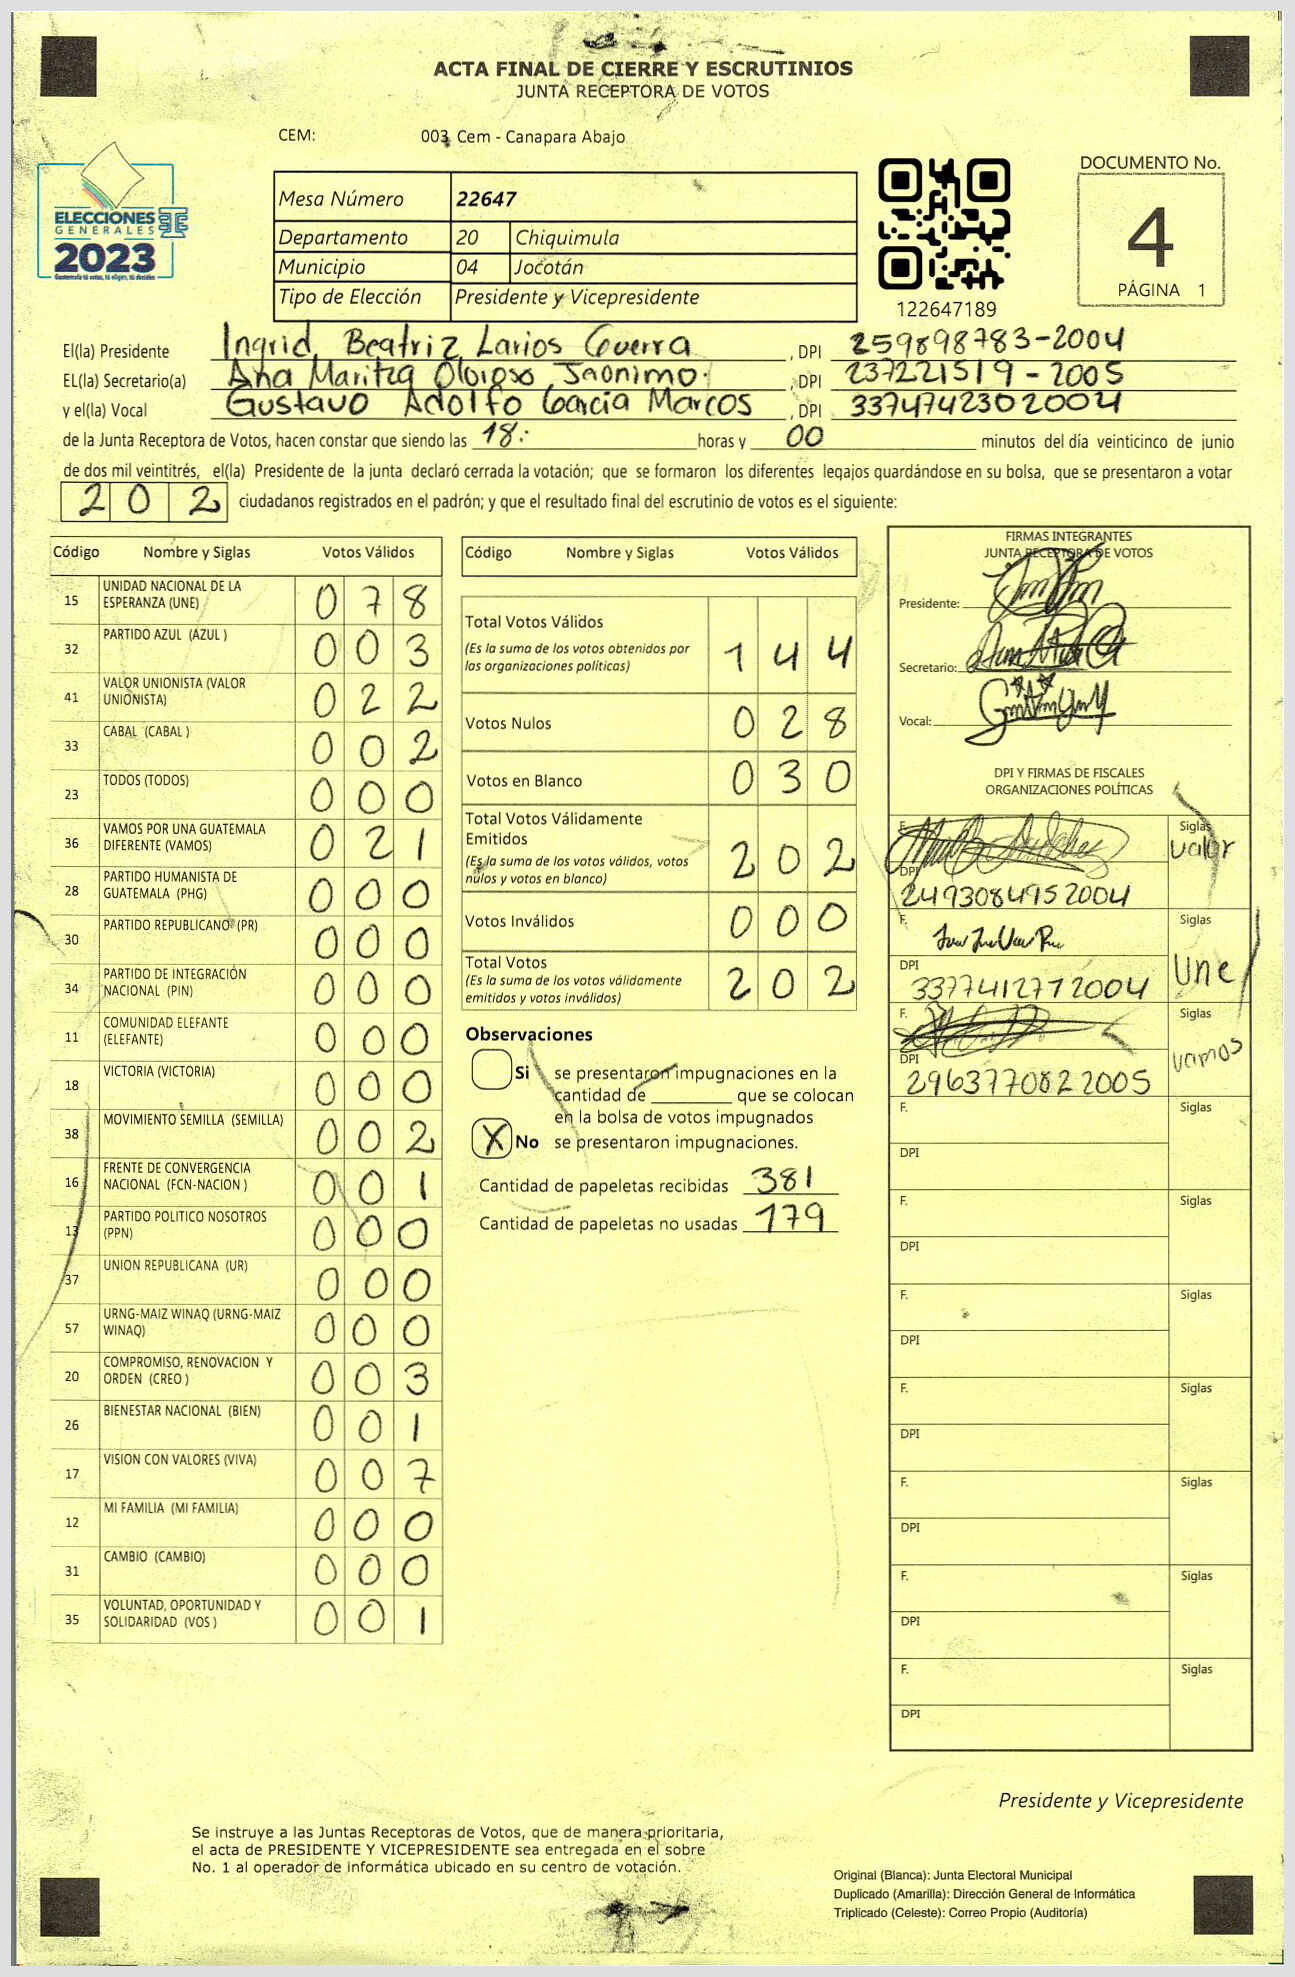 ACTA FINAL DE CIERRE Y ESCRUTINIOS
JUNTA RECEPTORA DE VOTOS
CEM: 003 Cem - Canapara Abajo
ELECCIONES
GENERALES
2023
Guatemala tú votas, tú eliges, tú decides
Mesa Número 22647
Departamento 20 Chiquimula
Municipio 04 Jocotán
Tipo de Elección Presidente y Vicepresidente
122647189
DOCUMENTO No.
4
PÁGINA 1
El(la) Presidente Ingrid Beatriz Larios Guerra, DPI 259898783-2004
EL(la) Secretario(a) Ana Maritza, DPI 237221519-2005
y el(la) Vocal Gustavo Adolfo Garcia Marcos, DPI 3374742302004
de la Junta Receptora de Votos, hacen constar que siendo las 18: horas y 00 minutos del día veinticinco de junio
de dos mil veintitrés, el(la) Presidente de la junta declaró cerrada la votación; que se formaron los diferentes legajos guardándose en su bolsa, que se presentaron a votar
202 ciudadanos registrados en el padrón; y que el resultado final del escrutinio de votos es el siguiente:
Código Nombre y Siglas Votos Válidos
15 UNIDAD NACIONAL DE LA ESPERANZA (UNE) 078
32 PARTIDO AZUL (AZUL ) 003
41 VALOR UNIONISTA (VALOR UNIONISTA) 022
33 CABAL (CABAL ) 002
23 TODOS (TODOS) 000
36 VAMOS POR UNA GUATEMALA DIFERENTE (VAMOS) 021
28 PARTIDO HUMANISTA DE GUATEMALA (PHG) 000
30 PARTIDO REPUBLICANO (PR) 000
34 PARTIDO DE INTEGRACIÓN NACIONAL (PIN) 000
11 COMUNIDAD ELEFANTE (ELEFANTE) 000
18 VICTORIA (VICTORIA) 000
38 MOVIMIENTO SEMILLA (SEMILLA) 002
16 FRENTE DE CONVERGENCIA NACIONAL (FCN-NACION ) 001
13 PARTIDO POLITICO NOSOTROS (PPN) 000
37 UNION REPUBLICANA (UR) 000
57 URNG-MAIZ WINAQ (URNG-MAIZ WINAQ) 000
20 COMPROMISO, RENOVACION Y ORDEN (CREO ) 003
26 BIENESTAR NACIONAL (BIEN) 001
17 VISION CON VALORES (VIVA) 007
12 MI FAMILIA (MI FAMILIA) 000
31 CAMBIO (CAMBIO) 000
35 VOLUNTAD, OPORTUNIDAD Y SOLIDARIDAD (VOS ) 001
Código Nombre y Siglas Votos Válidos
Total Votos Válidos 144
(Es la suma de los votos obtenidos por
las organizaciones políticas)
Votos Nulos 028
Votos en Blanco 030
Total Votos Válidamente
Emitidos 202
(Es la suma de los votos válidos, votos
nulos y votos en blanco)
Votos Inválidos 000
Total Votos 202
(Es la suma de los votos válidamente
emitidos y votos inválidos)
Observaciones
Si se presentaron impugnaciones en la
cantidad de ________ que se colocan
en la bolsa de votos impugnados
X No se presentaron impugnaciones.
Cantidad de papeletas recibidas 381
Cantidad de papeletas no usadas 179
FIRMAS INTEGRANTES
JUNTA RECEPTORA DE VOTOS
Presidente:
Secretario:
Vocal:
DPI Y FIRMAS DE FISCALES
ORGANIZACIONES POLÍTICAS
F. Siglas valor
DPI 2493084952004
F. Siglas Une
DPI 3377412772004
F. Siglas vamos
DPI 2963770822005
F. Siglas
DPI
F. Siglas
DPI
F. Siglas
DPI
F. Siglas
DPI
F. Siglas
DPI
F. Siglas
DPI
F. Siglas
DPI
Presidente y Vicepresidente
Se instruye a las Juntas Receptoras de Votos, que de manera prioritaria,
el acta de PRESIDENTE Y VICEPRESIDENTE sea entregada en el sobre
No. 1 al operador de informática ubicado en su centro de votación.
Original (Blanca): Junta Electoral Municipal
Duplicado (Amarilla): Dirección General de Informática
Triplicado (Celeste): Correo Propio (Auditoría)